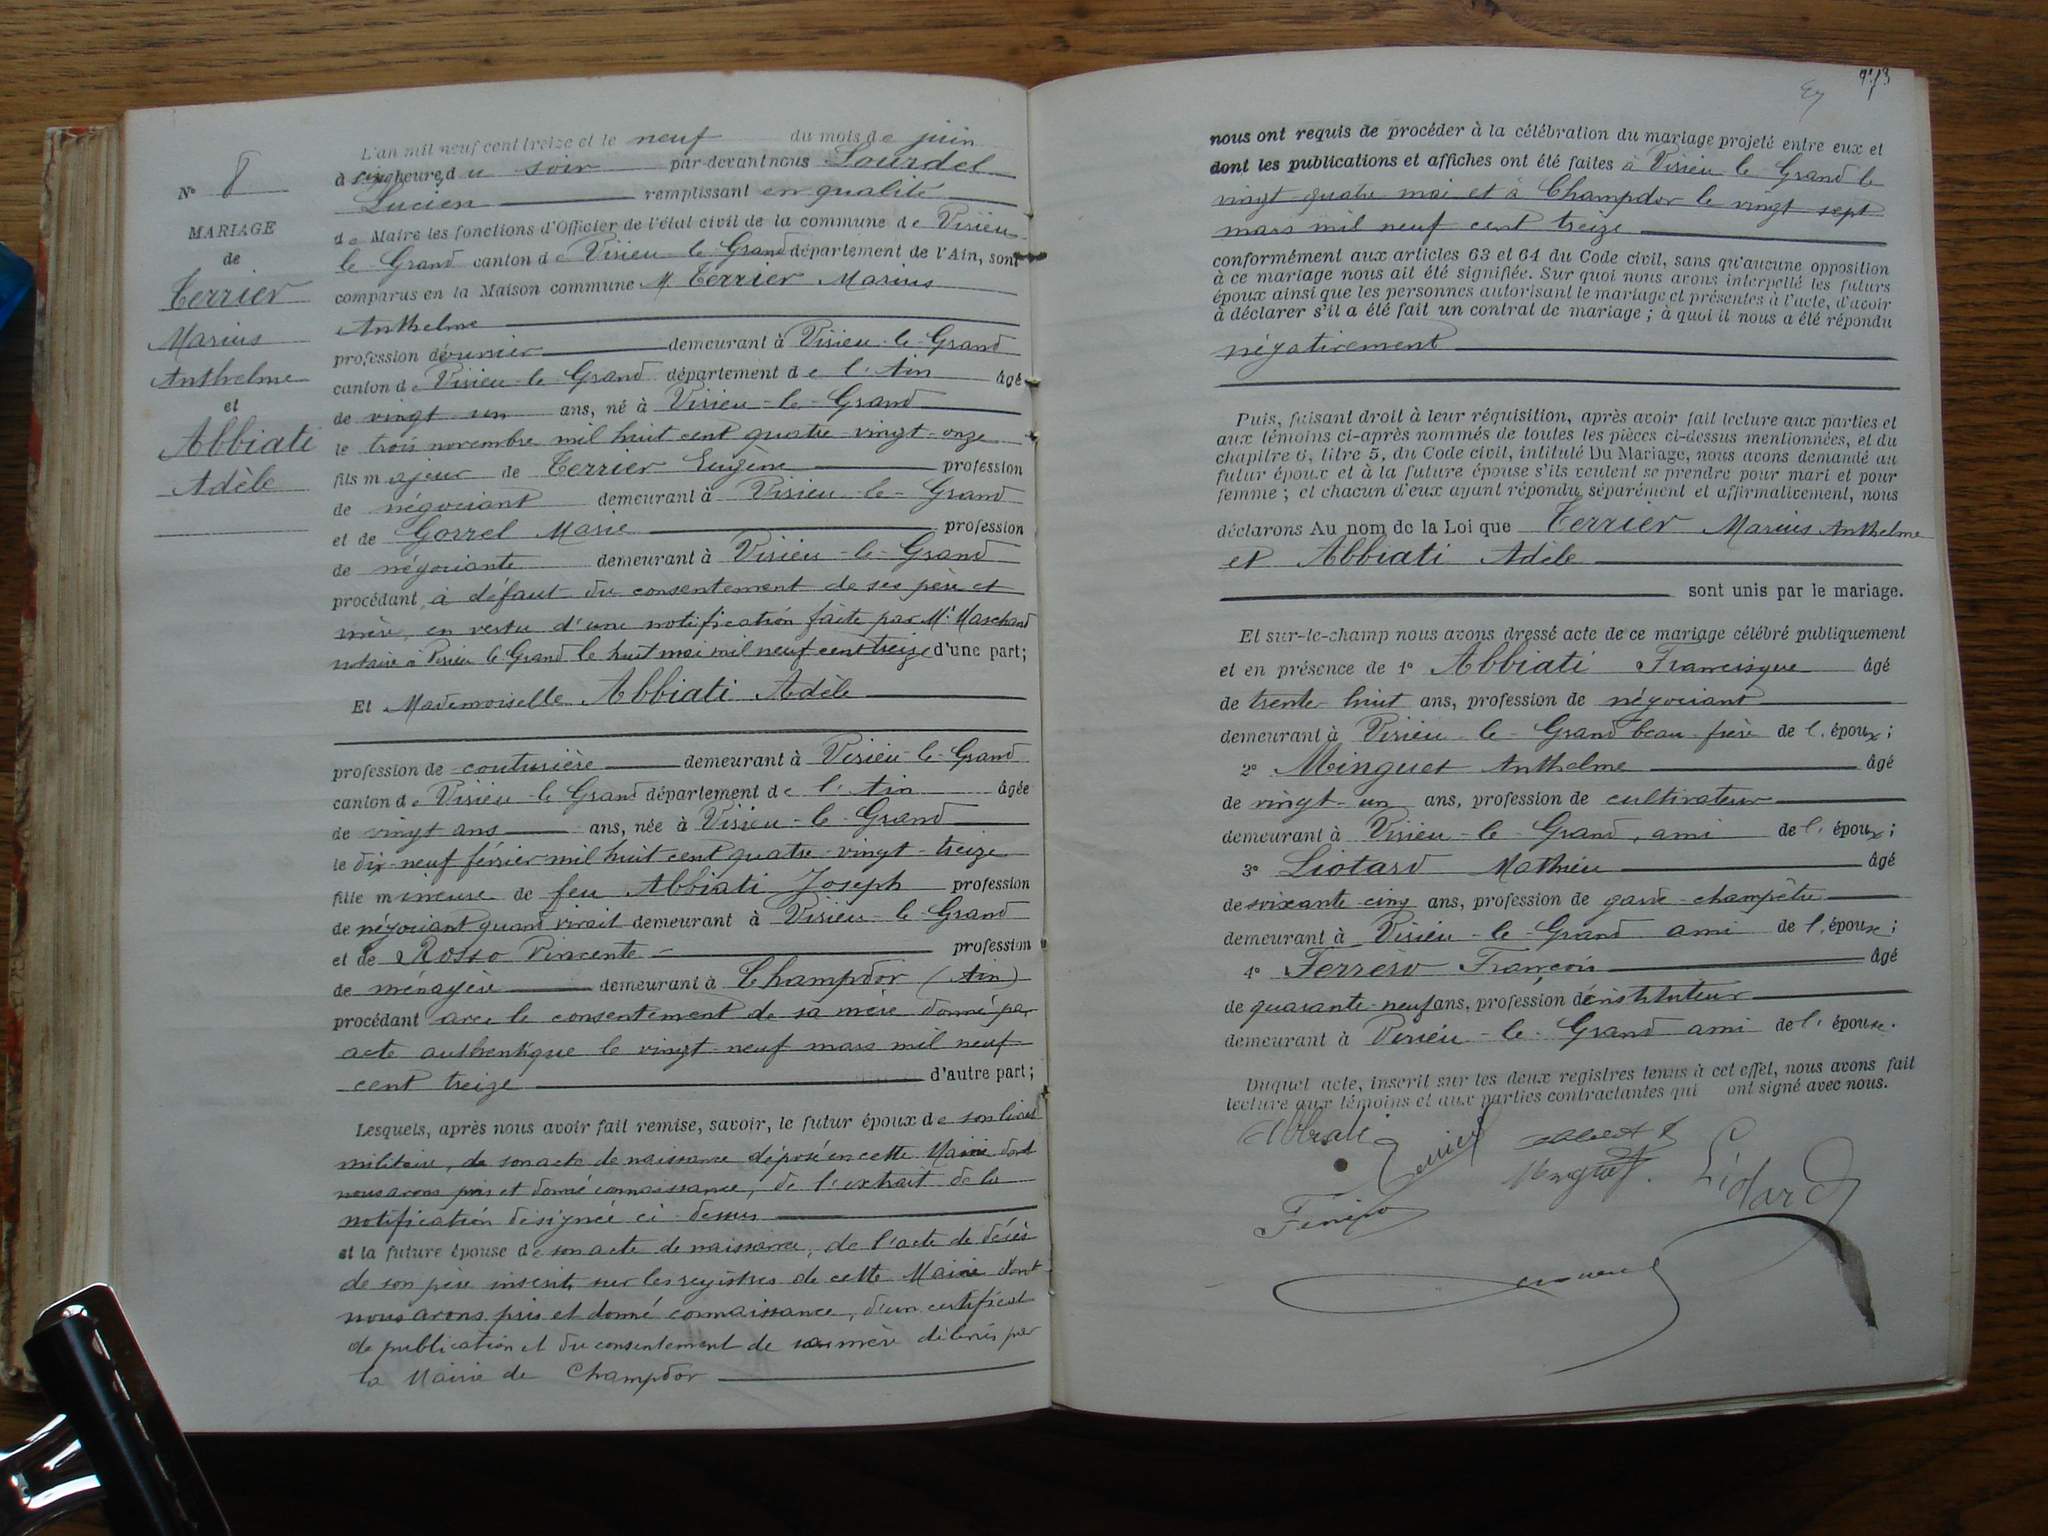 N° 8
MARIAGE
de
Terrier
Marius
Anthelme
et
Abbiati
Adèle
L'an mil neuf cent treize et le neuf du mois de juin
à cinq heures du soir par-devant nous Lourdel
Lucien remplissant en qualité
de Maire les fonctions d'Officier de l'état civil de la commune de Virieu
le Grand canton de Virieu le Grand département de l'Ain, sont
comparus en la Maison commune M. Terrier Marius
Anthelme
profession d'ouvrier demeurant à Virieu-le-Grand
canton de Virieu-le-Grand département de l'Ain âgé
de vingt un ans, né à Virieu-le-Grand
le trois novembre mil huit cent quatre-vingt-onze
fils majeur de Terrier Eugène profession
de négociant demeurant à Virieu-le-Grand
et de Gorrel Marie profession
de négociante demeurant à Virieu-le-Grand
procédant à défaut du consentement de ses père et
mère, en vertu d'une notification faite par Me Marchand
notaire à Virieu le Grand le huit mai mil neuf cent treize d'une part;
Et Mademoiselle Abbiati Adèle
profession de couturière demeurant à Virieu-le-Grand
canton de Virieu-le-Grand département de l'Ain âgée
de vingt ans ans, née à Virieu-le-Grand
le dix-neuf février mil huit cent quatre-vingt-treize
fille mineure de feu Abbiati Joseph profession
de négociant quand vivait demeurant à Virieu-le-Grand
et de Rosso Vincente profession
de ménagère demeurant à Champdor (Ain)
procédant avec le consentement de sa mère donné par
acte authentique le vingt-neuf mars mil neuf
cent treize d'autre part;
Lesquels, après nous avoir fait remise, savoir, le futur époux de son livret
militaire, de son acte de naissance déposé en cette Mairie dont
nous avons pris et donné connaissance, de l'extrait de la
notification désignée ci-dessus
et la future épouse de son acte de naissance, de l'acte de décès
de son père inscrits sur les registres de cette Mairie dont
nous avons pris et donné connaissance, d'un certificat
de publication et du consentement de sa mère délivrés par
la Mairie de Champdor
nous ont requis de procéder à la célébration du mariage projeté entre eux et
dont les publications et affiches ont été faites à Virieu-le-Grand le
vingt-quatre mai et à Champdor le vingt-sept
mars mil neuf cent treize
conformément aux articles 63 et 64 du Code civil, sans qu'aucune opposition
à ce mariage nous ait été signifiée. Sur quoi nous avons interpellé les futurs
époux ainsi que les personnes autorisant le mariage et présentes à l'acte, d'avoir
à déclarer s'il a été fait un contrat de mariage; à quoi il nous a été répondu
négativement
Puis, faisant droit à leur réquisition, après avoir fait lecture aux parties et
aux témoins ci-après nommés de toutes les pièces ci-dessus mentionnées, et du
chapitre 6, titre 5, du Code civil, intitulé Du Mariage, nous avons demandé au
futur époux et à la future épouse s'ils veulent se prendre pour mari et pour
femme; et chacun d'eux ayant répondu séparément et affirmativement, nous
déclarons Au nom de la Loi que Terrier Marius Anthelme
et Abbiati Adèle
sont unis par le mariage.
Et sur-le-champ nous avons dressé acte de ce mariage célébré publiquement
et en présence de 1° Abbiati Francisque âgé
de trente-huit ans, profession de négociant
demeurant à Virieu-le-Grand beau-frère de l'époux;
2° Minguet Anthelme âgé
de vingt-un ans, profession de cultivateur
demeurant à Virieu-le-Grand, ami de l'époux;
3° Liotard Mathieu âgé
de soixante-cinq ans, profession de garde-champêtre
demeurant à Virieu-le-Grand ami de l'épouse;
4° Ferrero François âgé
de quarante-neuf ans, profession d'instituteur
demeurant à Virieu-le-Grand ami de l'épouse.
Duquel acte, inscrit sur les deux registres tenus à cet effet, nous avons fait
lecture aux témoins et aux parties contractantes qui ont signé avec nous.
Abbiati Terrier
Minguet Liotard